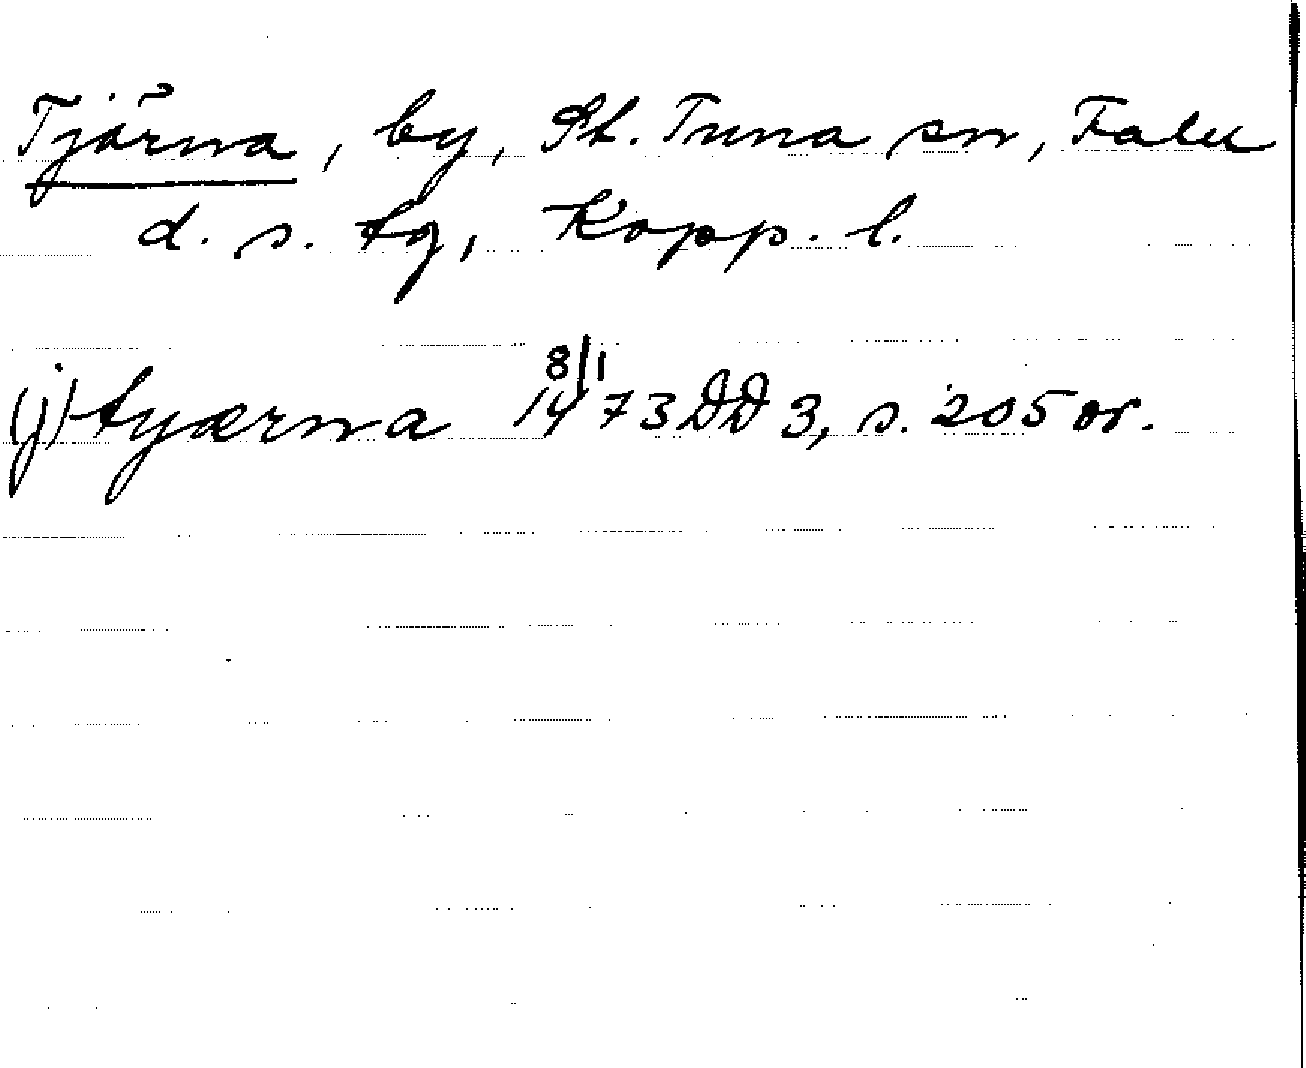 Tjärna, by, St. Tuna sn, Falu
d. s. tg, Kopp. l.
(j) tyærna 8/1 1473 DD 3, s. 205 or.